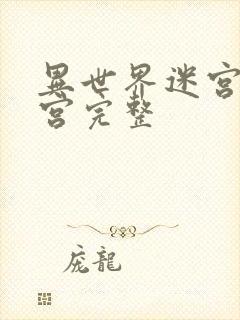 異世界迷宫
宫完整
庞龍